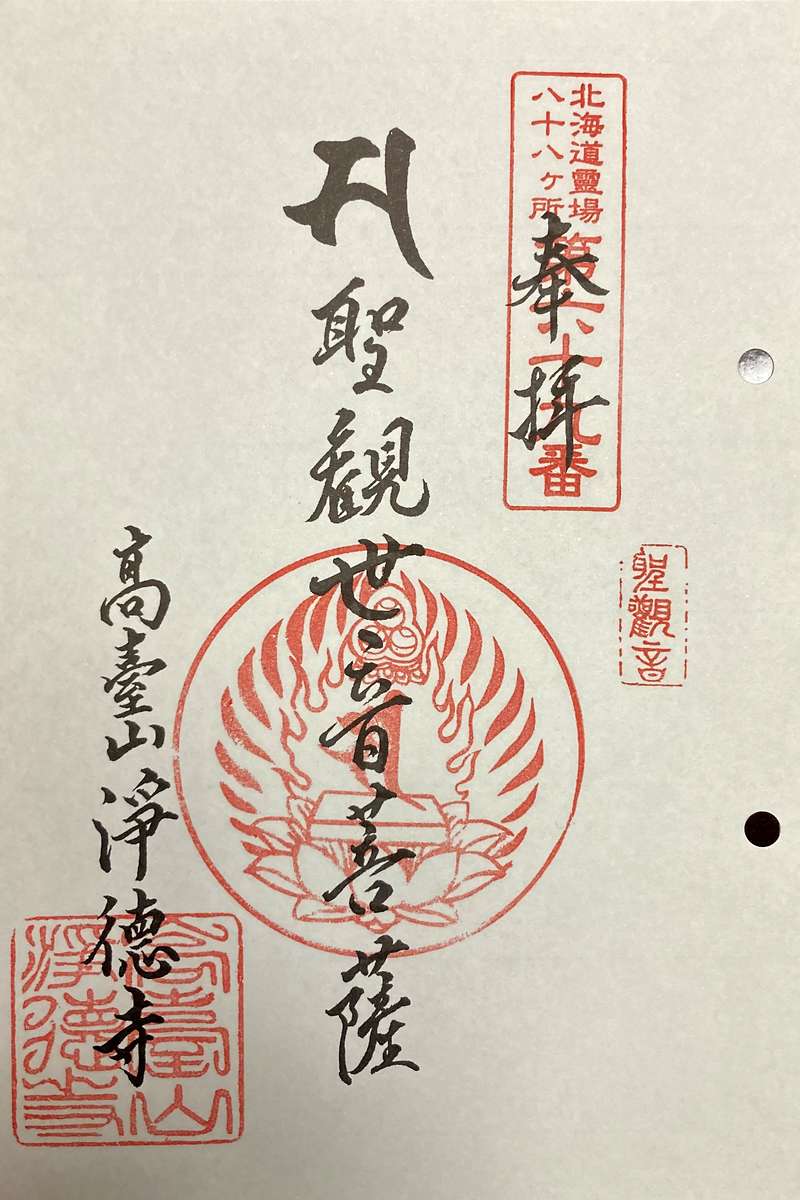 北海道靈場
八十八ヶ所
第六十九番
奉拝
聖觀音
𑖭聖觀世音菩薩
高臺山淨德寺
高臺山
淨德寺